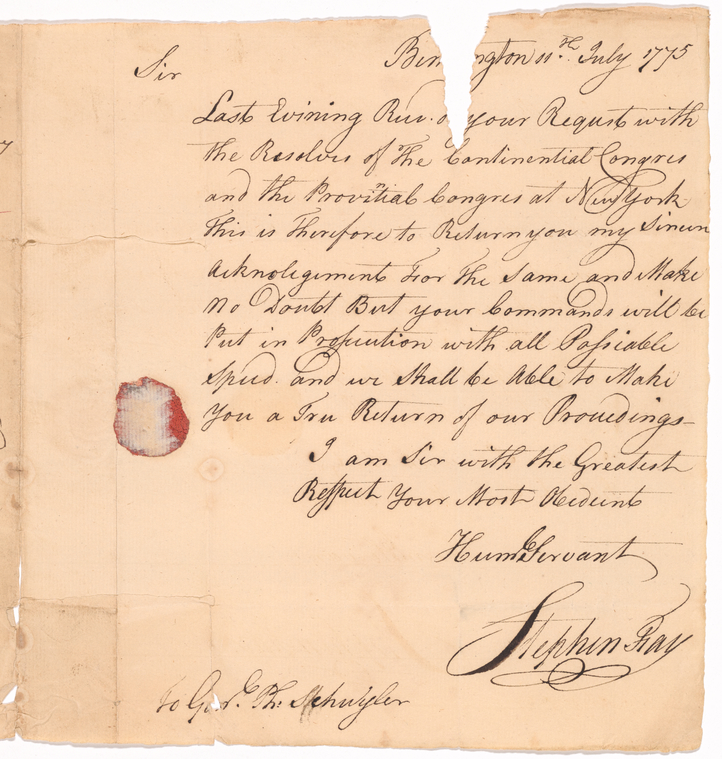 Bennington 11th July 1775
Sir
Last Evining Recd. your Request with
the Resolves of the Continential Congres
and the Provintial Congres at New York
this is Therefore to Return you my Sinceer
Acknolegement For the Same and Make
No Doubt But your Commands will be
Put in Prosecution with all Possiable
Speed. and we Shall be Able to Make
You a Tru Return of our Proceedings—
I am Sir with the Greatest
Respect Your Most Obedient
Humbe Servant
Stephen Fay
to Genl. Ph: Schuyler